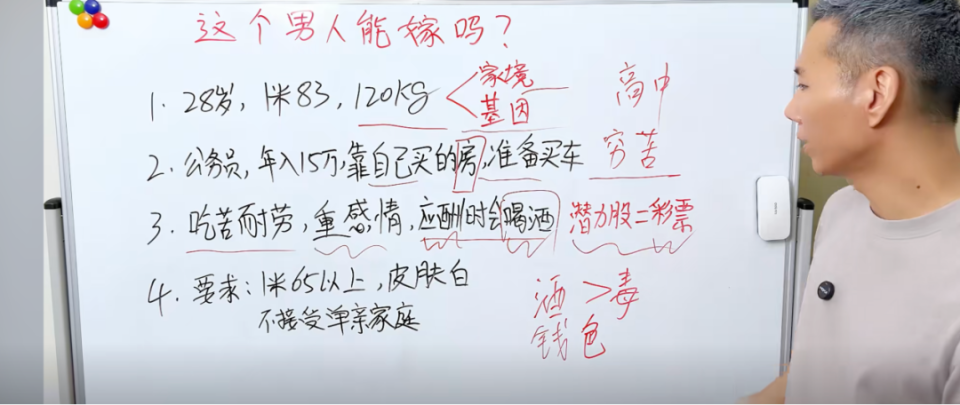 这个男人能嫁吗?
1. 28岁, 1米83, 120kg
家境
基因
高中
2. 公务员, 年入15万, 靠自己买的房, 准备买车
穷苦
3. 吃苦而耐劳, 重感情, 应酬时会喝酒
潜力股=彩票
4. 要求: 1米65以上, 皮肤白
不接受单亲家庭
酒>毒
钱色